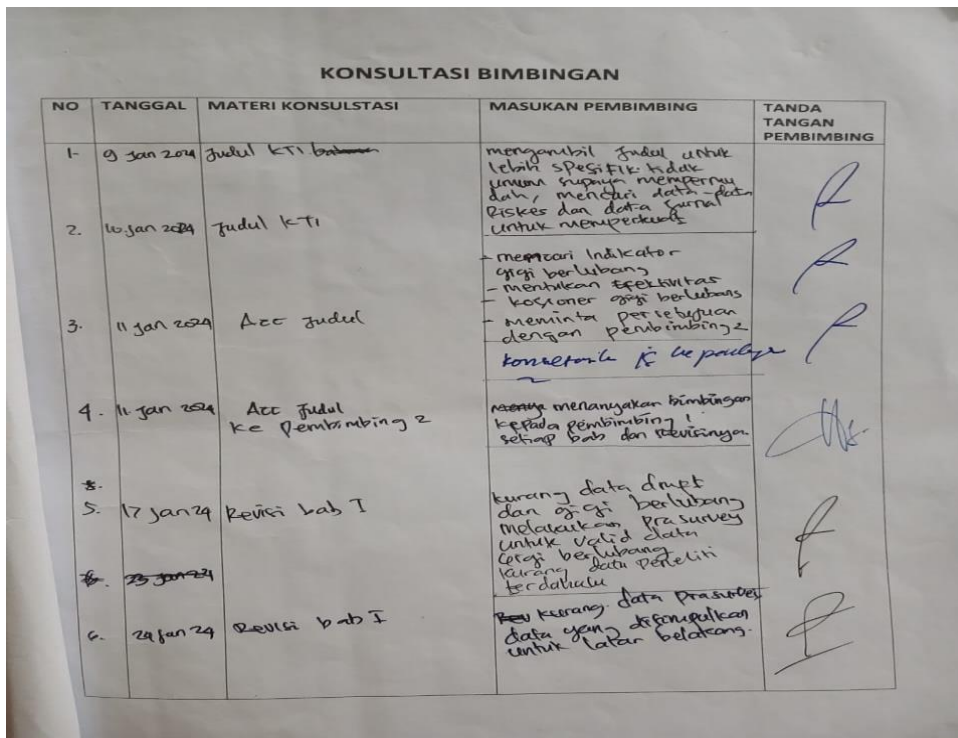 KONSULTASI BIMBINGAN
NO TANGGAL MATERI KONSULSTASI MASUKAN PEMBIMBING TANDA TANGAN PEMBIMBING
1- 9 Jan 2024 Judul KTI
mengambil Judul untuk
lebih spesifik tidak
umum supaya mempermu
dah, mencari data-data
Riskes dan data Jurnal
untuk memperkuat
2. 10 Jan 2024 Judul KTI
- mencari Indikator
gigi berlubang
- mentukan Efektivitas
- kosioner gigi berlubang
3. 11 Jan 2024 Acc Judul
- meminta persetujuan
dengan pembimbing 2
4. 11 Jan 2024 Acc Judul
ke Pembimbing 2
menanyakan bimbingan
kepada pembimbing 1
setiap bab dan Revisinya.
5. 17 Jan 24 Revisi bab I
kurang data dmft
dan gigi berlubang
melakukan prasurvey
untuk valid data
gigi berlubang
kurang data peneliti
terdahulu
23 Jan 24
6. 29 Jan 24 Revisi bab I
kurang data prasurvei
data yang disimpulkan
untuk latar belakang.